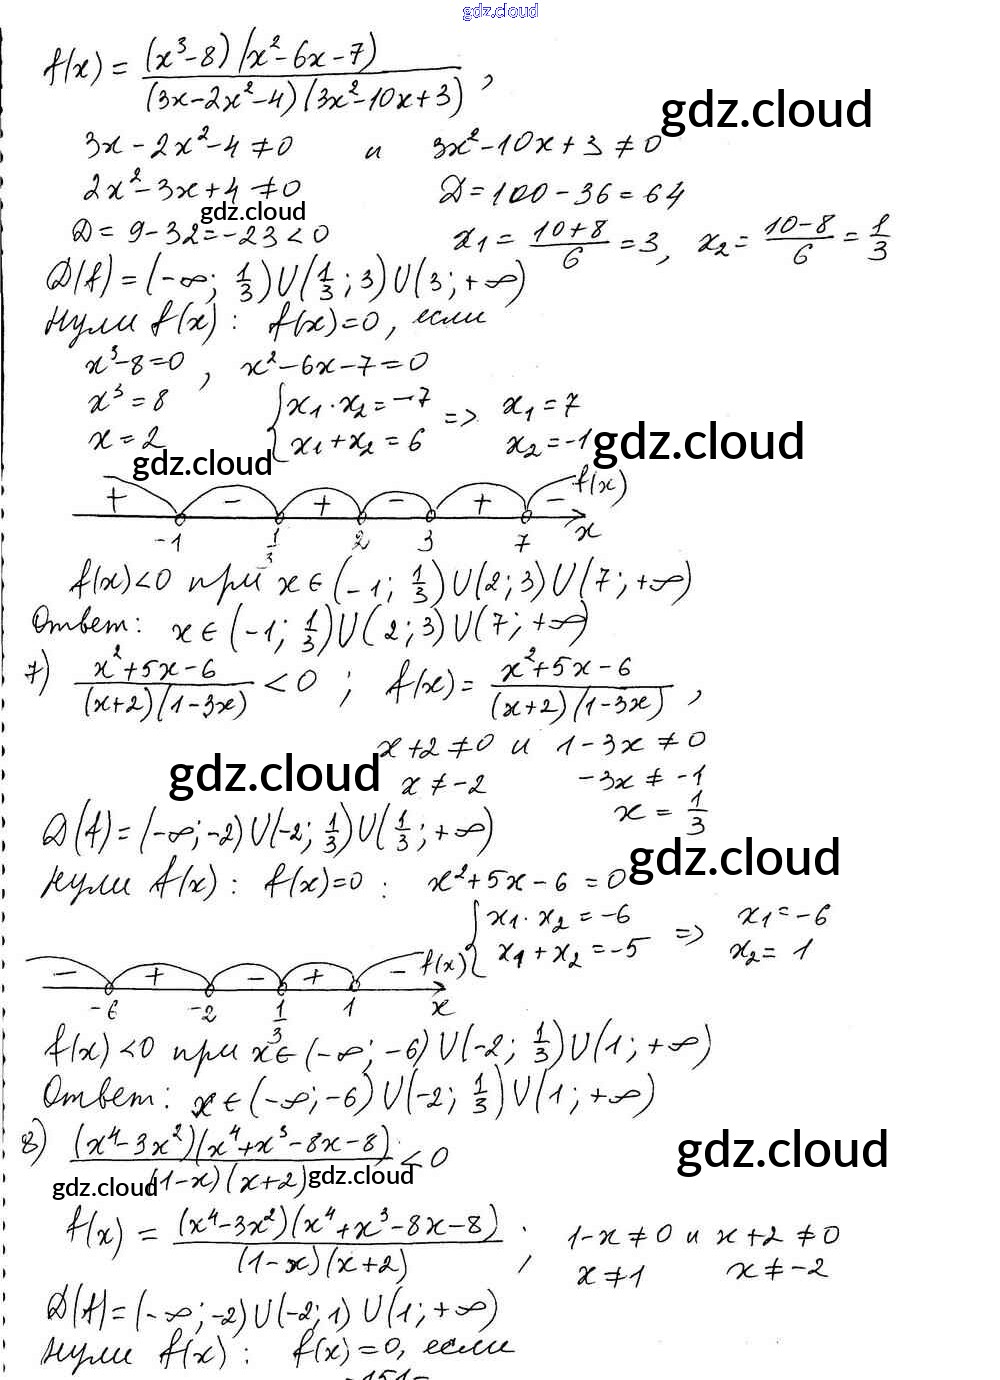 gdz.cloud
f(x) = (x³-8)(x²-6x-7) / (3x-2x²-4)(3x²-10x+3) ,
gdz.cloud
3x-2x²-4≠0 и 3x²-10x+3≠0
2x²-3x+4≠0 D=100-36=64
gdz.cloud
D=9-32=-23<0 x₁= (10+8)/6 =3, x₂= (10-8)/6 = 1/3
D(f)=(-∞; 1/3)∪(1/3; 3)∪(3; +∞)
Нули f(x): f(x)=0, если
x³-8=0, x²-6x-7=0
x³=8 { x₁·x₂=-7 => x₁=7
x=2 x₁+x₂=6 x₂=-1
gdz.cloud
gdz.cloud
+ - + - + - f(x)
-1 1/3 2 3 7 x
f(x)<0 при x∈(-1; 1/3)∪(2; 3)∪(7; +∞)
Ответ: x∈(-1; 1/3)∪(2; 3)∪(7; +∞)
7) (x²+5x-6) / (x+2)(1-3x) <0 ; f(x)= (x²+5x-6) / (x+2)(1-3x) ,
x+2≠0 и 1-3x≠0
gdz.cloud
x≠-2 -3x≠-1
x = 1/3
D(f)=(-∞;-2)∪(-2; 1/3)∪(1/3; +∞)
gdz.cloud
Нули f(x): f(x)=0: x²+5x-6=0
{ x₁·x₂=-6 => x₁=-6
x₁+x₂=-5 x₂=1
- + - + - f(x)
-6 -2 1/3 1 x
f(x)<0 при x∈(-∞; -6)∪(-2; 1/3)∪(1; +∞)
Ответ: x∈(-∞;-6)∪(-2; 1/3)∪(1; +∞)
8) (x⁴-3x²)(x⁴+x³-8x-8) / (1-x)(x+2) <0
gdz.cloud
gdz.cloud
gdz.cloud
f(x) = (x⁴-3x²)(x⁴+x³-8x-8) / (1-x)(x+2) ; 1-x≠0 и x+2≠0
x≠1 x≠-2
D(f)=(-∞;-2)∪(-2; 1)∪(1; +∞)
Нули f(x): f(x)=0, если
-151-